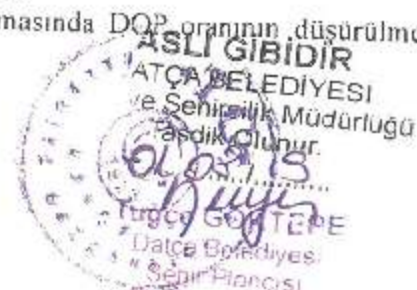 masında DOP oranının düşürülme
ASLI GİBİDİR
ATÇA BELEDİYESİ
e Şehircilik Müdürlüğü
asdik Olunur.
Tuğçe GÖKTEPE
Datça Belediyesi
Şehir Plancısı